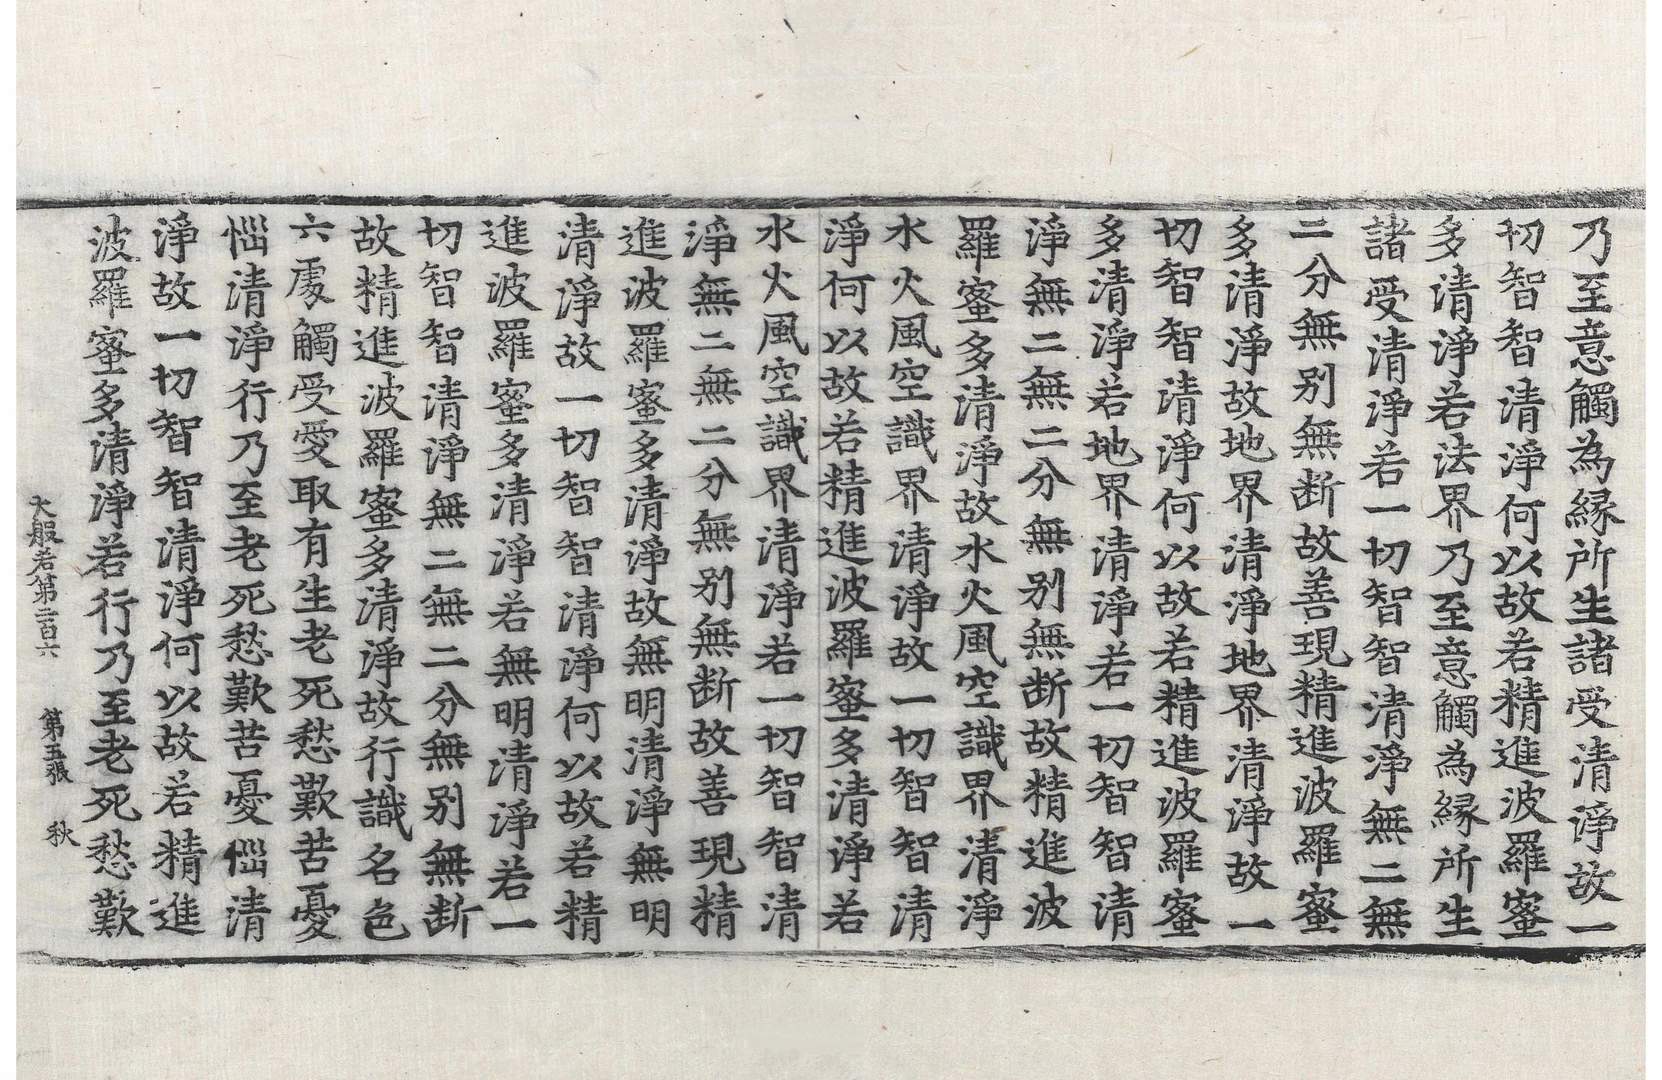 乃至意觸為縁所生諸受清淨故一
切智智清淨何以故若精進波羅蜜
多清淨若法界乃至意觸為縁所生
諸受清淨若一切智智清淨無二無
二分無別無断故善現精進波羅蜜
多清淨故地界清淨地界清淨故一
切智智清淨何以故若精進波羅蜜
多清淨若地界清淨若一切智智清
淨無二無二分無別無断故精進波
羅蜜多清淨故水火風空識界清淨
水火風空識界清淨故一切智智清
淨何以故若精進波羅蜜多清淨若
水火風空識界清淨若一切智智清
淨無二無二分無別無断故善現精
進波羅蜜多清淨故無明清淨無明
清淨故一切智智清淨何以故若精
進波羅蜜多清淨若無明清淨若一
切智智清淨無二無二分無別無断
故精進波羅蜜多清淨故行識名色
六處觸受愛取有生老死愁歎苦憂
惱清淨行乃至老死愁歎苦憂惱清
淨故一切智智清淨何以故若精進
波羅蜜多清淨若行乃至老死愁歎
大般若第二百六 第五張 秋